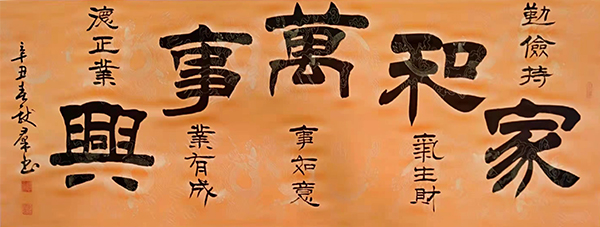 勤儉持家
和氣生財
萬事如意
事業有成
德正業興
辛丑春群書